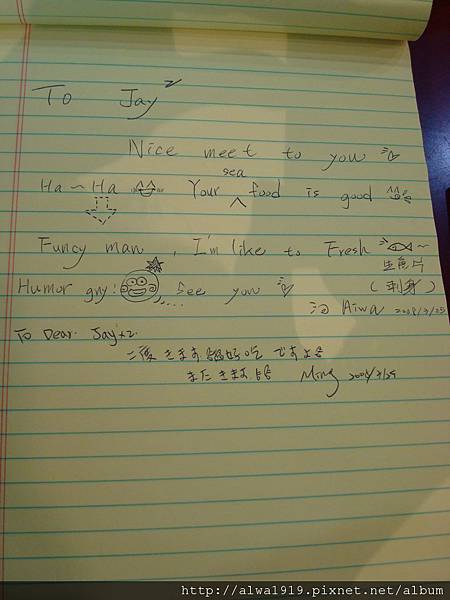 To Jay
Nice meet to you
sea
Ha~Ha Your food is good
Funcy man, I'm like to Fresh ~
生魚片
Humor guy: See you (刺身)
Aiwa
To Dear. Jay
きます 超好吃 ですよ
また きます Ming
http://alwa1919.pixnet.net/album